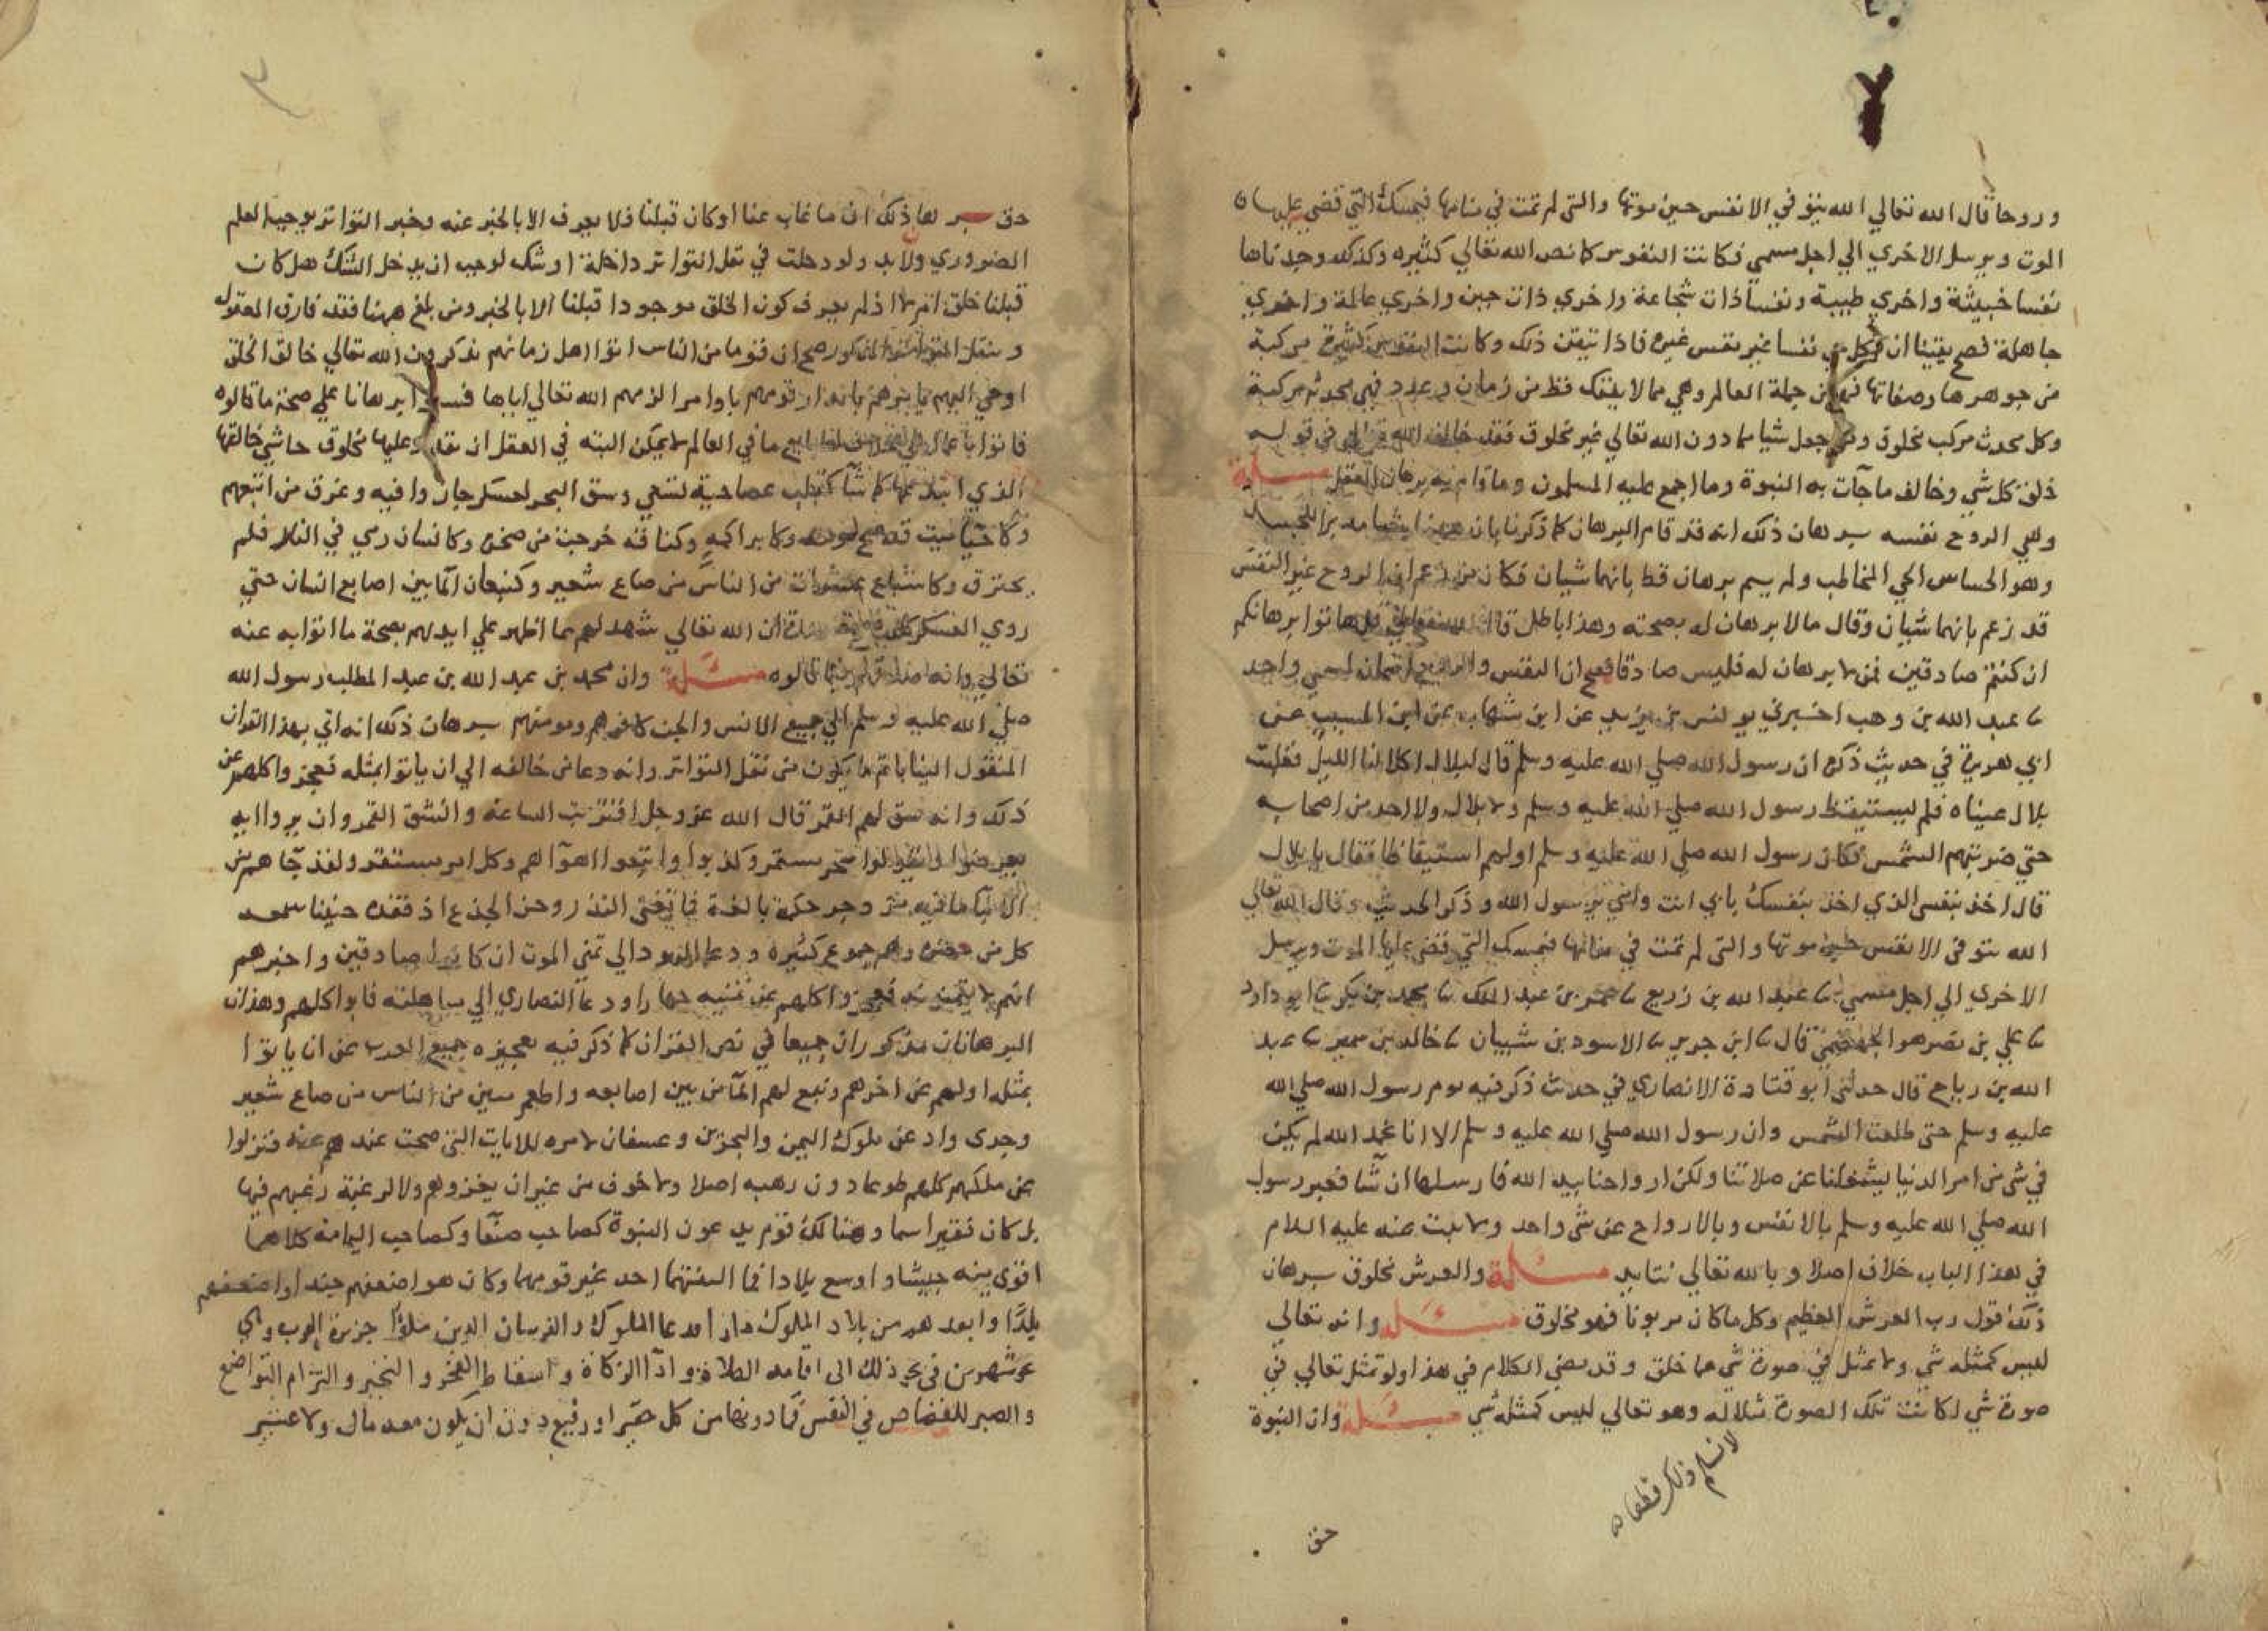 وروحا قال الله تعالي الله يتوفي الانفس حين موتها والتي لم تمت في منامها فيمسك التي قضي عليها
الموت ويرسل الاخري الي اجل مسمي فكانت النفوس كما نص الله تعالي كثيره وكذلك وجدناها
نفسا خبيثة واخري طيبة ونفسا ذات شجاعة واخري ذات جبن واخري عالمة واخري
جاهلة فصح يقينا ان لكل حي نفسا غير نفس غيره فاذا تيقن ذلك وكانت النفوس كثيرة مركبة
من جوهرها وصفاتها فهي من جملة العالم وهي مما لا ينفك قط من زمان وعدد فهي محدثة مركبة
وكل محدث مركب مخلوق ومن جعل شيا مما دون الله تعالي غير مخلوق فقد خالف الله تعالي في قوله
خلق كل شي وخالف ما جآت به النبوة وما اجمع عليه المسلمون وما قام به برهان العقل مسئلة
وهي الروح نفسه برهان ذلك انه قد قام البرهان كما ذكرنا بان ههنا شيا مدبرا للجسد
وهو الحساس الحي المخاطب ولم يقم برهان قط بانهما شيان فكان من زعم ان الروح غير النفس
قد زعم بانهما شيان وقال ما لا برهان له بصحته وهذا باطل قال الله تعالي قل هاتوا برهانكم
ان كنتم صادقين فمن لا برهان له فليس صادقا فصح ان النفس والروح اسمان لمسمي واحد
عبد الله بن وهب اخبرني يونس بن يزيد عن ابن شهاب عن ابن المسيب عن
ابي هريرة في حديث ذكره ان رسول الله صلي الله عليه وسلم قال لبلال اكلا لنا الليل فغلبت
بلال عيناه فلم يستيقظ رسول الله صلي الله عليه وسلم ولا بلال ولا احد من اصحابه
حتي ضربتهم الشمس فكان رسول الله صلي الله عليه وسلم اولهم استيقاظا فقال يا بلال
قال اخذ بنفسي الذي اخذ بنفسك بابي انت وامي يا رسول الله وذكر الحديث وقال الله تعالي
الله يتوفى الانفس حين موتها والتي لم تمت في منامها فيمسك التي قضي عليها الموت ويرسل
الاخري الي اجل مسمي عبد الله بن ربيع عمر بن عبد الملك محمد بن بكر ابو داود
علي بن نصر هو الجهضمي قال ابن جرير الاسود بن شيبان خالد بن سمير عبد
الله بن رباح قال حدثني ابو قتادة الانصاري في حديث ذكر فيه نوم رسول الله صلي الله
عليه وسلم حتى طلعت الشمس وان رسول الله صلي الله عليه وسلم الا انا نحمد الله لم يكن
في شي من امر الدنيا يشغلنا عن صلاتنا ولكن ارواحنا بيد الله فارسلها ان شآ فعبر رسول
الله صلي الله عليه وسلم بالانفس وبالارواح عن شي واحد ولا يثبت عنه عليه السلام
في هذا الباب خلاف اصلا وبالله تعالي نتايد مسئلة والعرش مخلوق برهان
ذلك قول رب العرش العظيم وكل ما كان مربوبا فهو مخلوق مسئلة وانه تعالي
ليس كمثله شي ولا يتمثل في صورة شي مما خلق وقد مضي الكلام في هذا ولو تمثل تعالي في
صورة شي لكانت تلك الصورة مثلا له وهو تعالي ليس كمثله شي مسئلة وان النبوة
لا نسلم ذلك قطعا
حق
حق برهان ذلك ان ما غاب عنا او كان قبلنا فلا يعرف الا بالخبر عنه وخبر التواتر يوجب العلم
الضروري ولابد ولو دخلت في نقل التواتر داخلة او شك لوجب ان يدخل الشك هل كان
قبلنا خلق ام لا اذ لم يعرف كون الخلق موجودا قبلنا الا بالخبر ومن بلغ ههنا فقد فارق المعقول
وبنقل التواتر المذكور صح ان قوما من الناس اتوا اهل زمانهم يذكرون ان الله تعالي خالق الخلق
اوحي اليهم يامرهم بانذار قومهم باوامر الزمهم الله تعالي اياها فسئلوا برهانا علي صحة ما قالوه
فاتوا باعمال هي خلاف لطبايع ما في العالم لا يمكن البته في العقل ان يقدر عليها مخلوق حاشي خالقها
الذي ابتدعها كما شآ كقلب عصا حية تسعي وشق البحر لعسكر جاز وا فيه وغرق من اتبعهم
وكاحيا ميت قد صح موته وكابرا اكمه وكناقة خرجت من صخرة وكانسان رمي في النار فلم
يحترق وكاشباع عشرات من الناس من صاع شعير وكنبعان المآ بين اصابع انسان حتي
روي العسكر كله فصح ان الله تعالي شهد لهم بما اظهر علي ايديهم بصحة ما اتوا به عنه
تعالي وانه صدقهم فيما قالوه مسئلة وان محمد بن عبد الله بن عبد المطلب رسول الله
صلي الله عليه وسلم الي جميع الانس والجن كافرهم ومومنهم برهان ذلك انه اتي بهذا القران
المنقول الينا باتم ما يكون من نقل التواتر وانه دعا من خالفه الي ان ياتوا بمثله فعجزوا كلهم عن
ذلك وانه شق لهم القمر قال الله عز وجل اقتربت الساعة وانشق القمر وان يروا اية
يعرضوا ويقولوا سحر مستمر وكذبوا واتبعوا اهوآهم وكل امر مستقر ولقد جآهم من
الانبآ ما فيه مزدجر حكمة بالغة فما تغني النذر وحن الجذع اذ فقده حنينا سمعه
كل من حضره وهم جموع كثيره ودعا اليهود الي تمني الموت ان كانوا صادقين واخبرهم
انهم لا يتمنونه فعجزوا كلهم عن تمنيه جهارا ودعا النصاري الي مباهلته فابوا كلهم وهذان
البرهانان مذكوران جميعا في نص القران كما ذكر فيه تعجيزه جميع العرب عن ان ياتوا
بمثله اولهم عن اخرهم ونبع لهم المآ من بين اصابعه واطعم مئين من الناس من صاع شعير
وجدي واذعن ملوك اليمن والبحرين وعمان لامره للايات التي صحت عندهم عنه فنزلوا
عن ملكهم كلهم طوعا دون رهبه اصلا ولا خوف من غير ان يغزوهم ولا لرغبة رغبهم فيها
بل كان فقيرا يتيما وهنالك قوم يدعون النبوة كصاحب صنعآ وكصاحب اليمامة كلاهما
اقوي منه جيشا واوسع بلادا فما التفت لهما احد غير قومهما وكان هو اضعفهم جندا واضعفهم
بلدا وابعدهم من بلاد الملوك دارا فدعا الملوك والفرسان الذين ملؤا جزيرة العرب وهي
نحو شهرين في نحو ذلك الى اقامة الصلاة وادآ الزكاة واسقاط الفخر والتجبر والتزام التواضع
والصبر للقصاص في النفس فما دونها من كل حقير او رفيع دون ان يكون معه مال ولا عشير